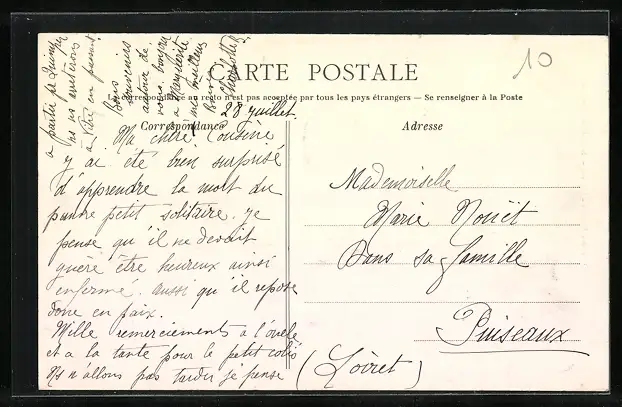 10
CARTE POSTALE
La correspondance au recto n'est pas acceptée par tous les pays étrangers — Se renseigner à la Poste
Correspondance
Adresse
28 juillet.
Ma chère Cousine
y ai été bien surprisé
d'apprendre la mort du
pauvre petit solitaire. je
pense qu'il ne devait
guéré être heureux ainsi
enfermé. aussi qu'il repose
donc en paix.
Mille remerciements a l'oncle
et a la tante pour le petit colis
n'allons pas tarder je pense
a partir
en passant
Bons
souvenirs
autour de
vous
a Marguerite
meilleurs
Baisers
Mademoiselle
Marie Nouët
Dans sa famille
Puiseaux
(Loiret)